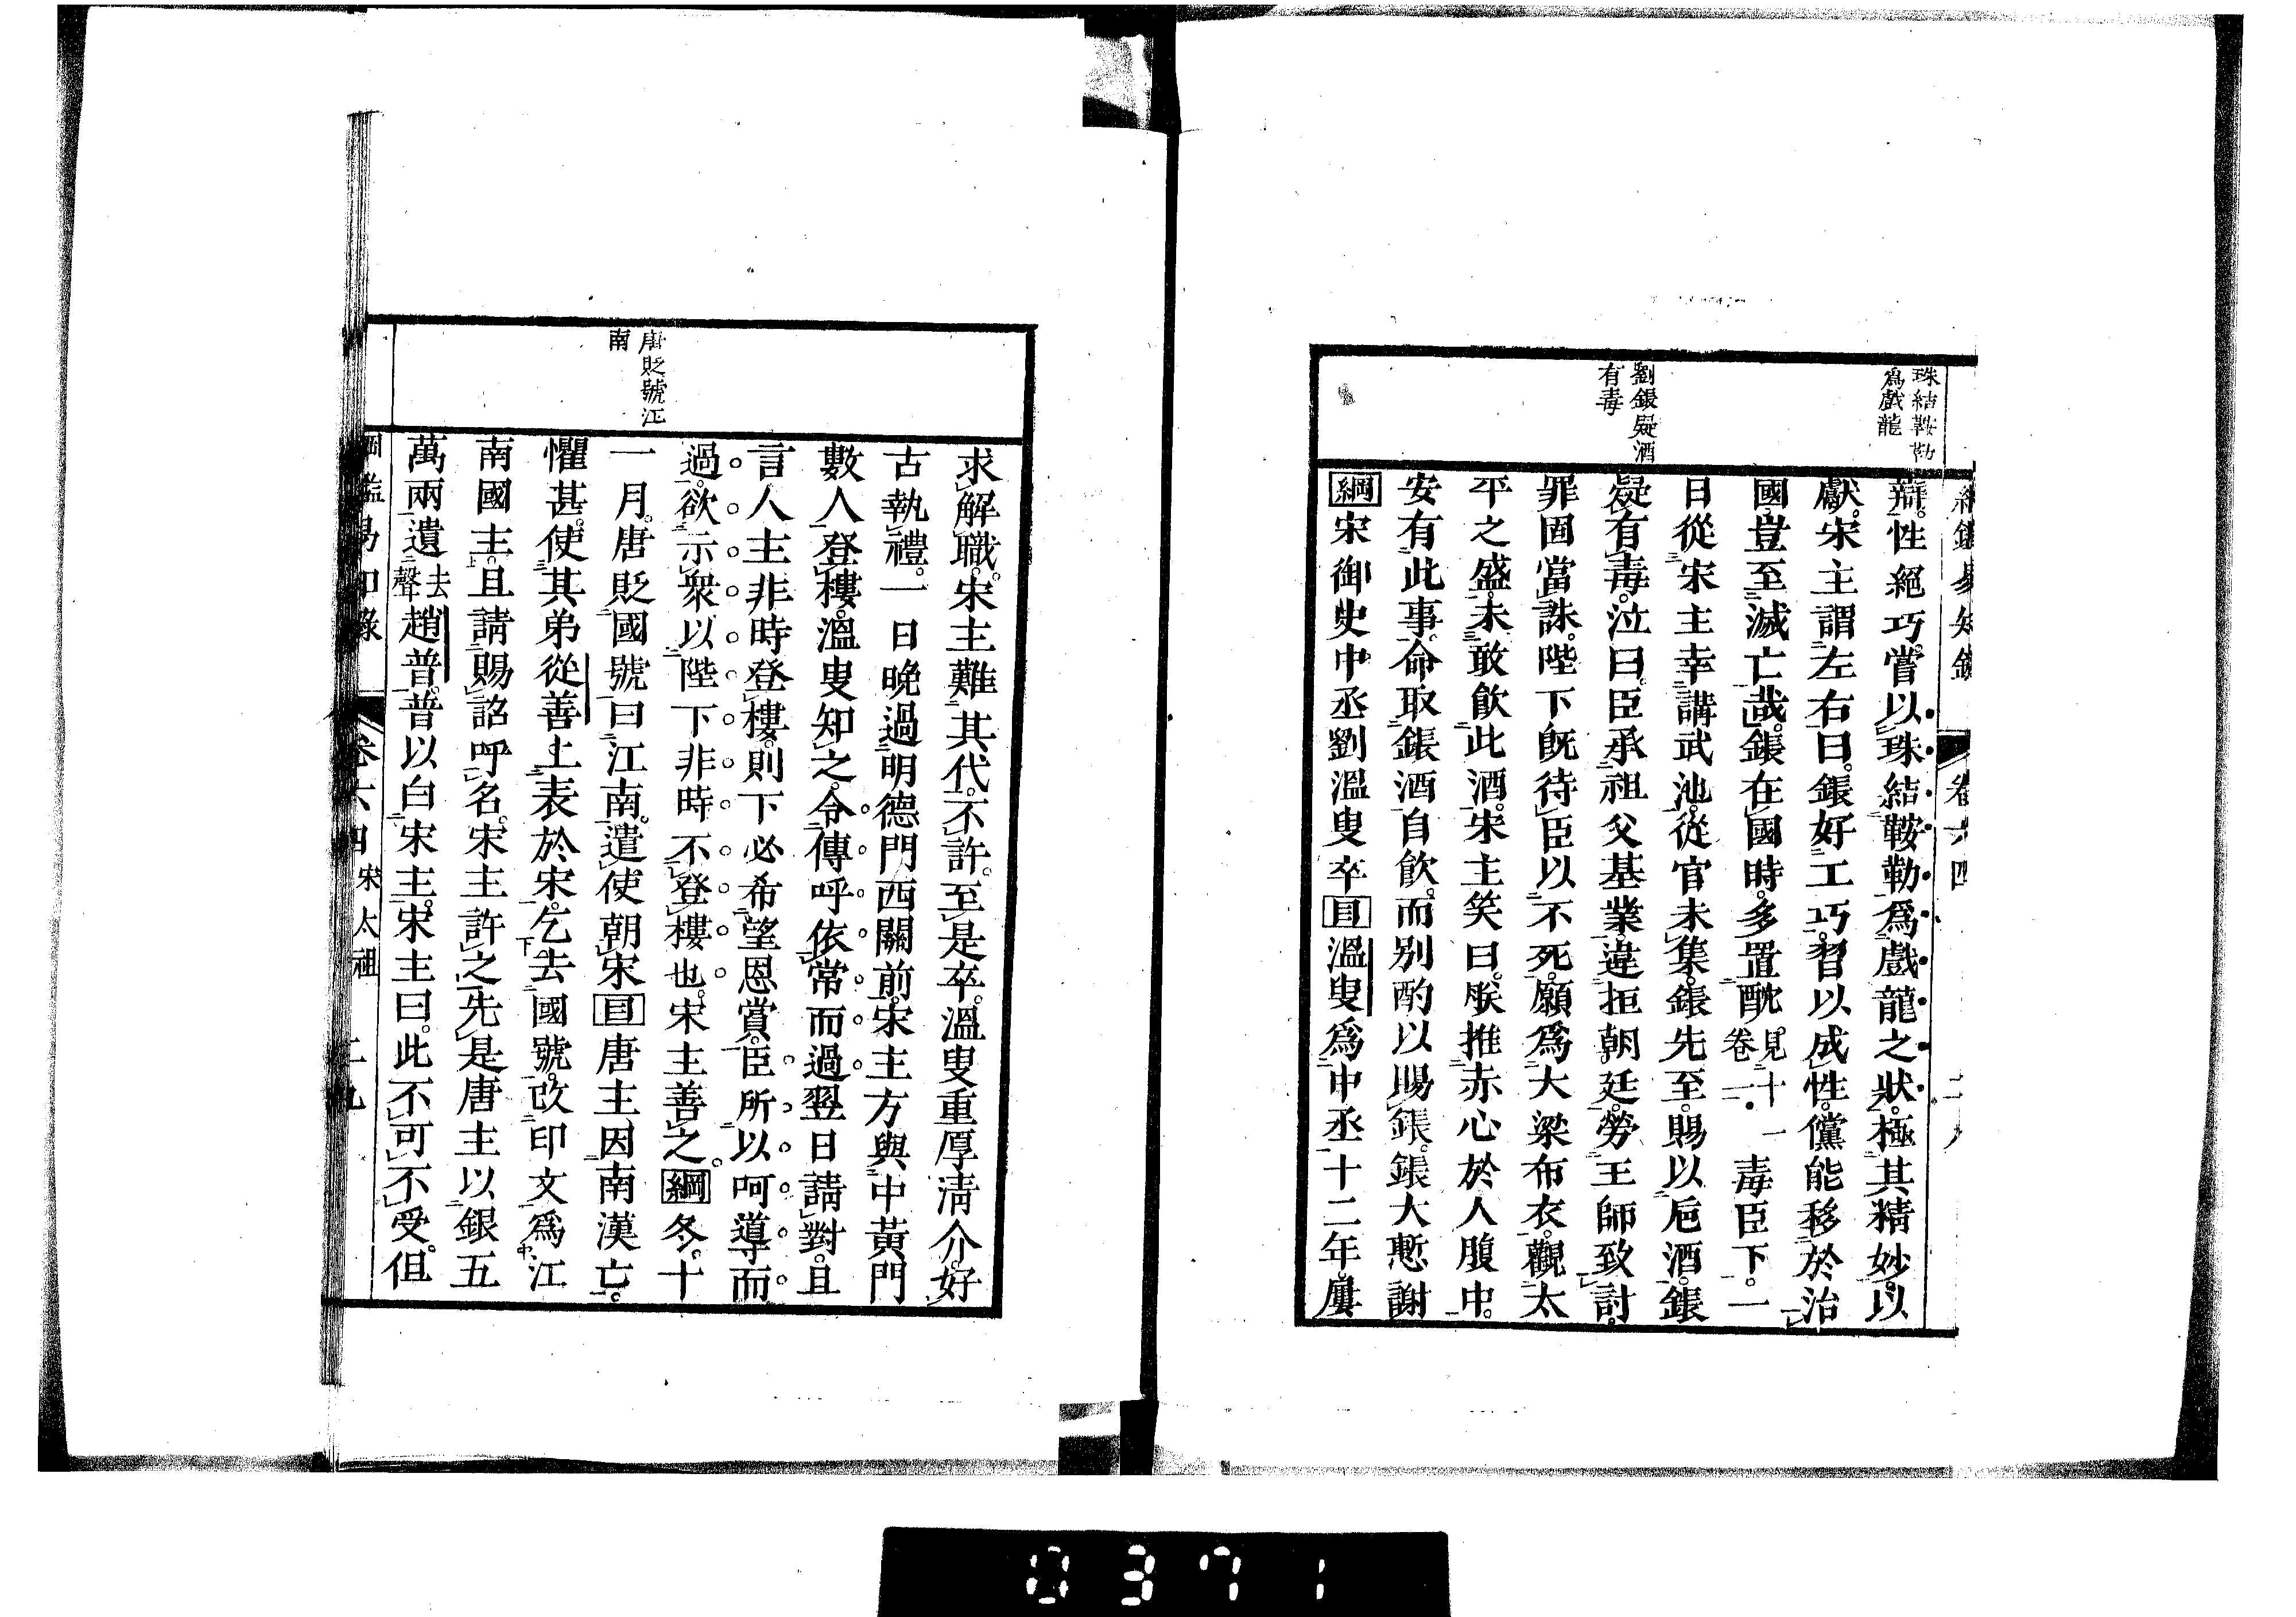 綱鑑易知錄 卷六四
珠結鞍勒
爲戲龍
劉鋹疑酒
有毒
辯。性絕巧。嘗以珠結鞍勒爲戲龍之狀。極其精妙。以
獻。宋主謂左右曰。鋹好工巧。習以成性。儻能移於治
國。豈至滅亡哉。鋹在國時。多置酖見十一卷二。毒臣下。一
日從宋主幸講武池。從官未集。鋹先至。賜以巵酒。鋹
疑有毒。泣曰。臣承祖父基業。違拒朝廷。勞王師致討。
罪固當誅。陛下旣待臣以不死。願爲大梁布衣。觀太
平之盛。未敢飮此酒。宋主笑曰。朕推赤心於人腹中。
安有此事。命取鋹酒自飮。而別酌以賜鋹。鋹大慙謝
綱宋御史中丞劉溫叟卒目溫叟爲中丞十二年。屢
唐貶號江
南
求解職。宋主難其代。不許。至是卒。溫叟重厚淸介。好
古執禮。一日晚過明德門西闕前。宋主方與中黃門
數人登樓。溫叟知之。令傳呼依常而過。翌日請對。且
言人主非時登樓。則下必希望恩賞。臣所以呵導而
過。欲示衆以陛下非時不登樓也。宋主善之。綱冬。十
一月。唐貶國號曰江南。遣使朝宋目唐主因南漢亡。
懼甚。使其弟從善上表於宋。乞去國號。改印文爲江
南國主。且請賜詔呼名。宋主許之。先是唐主以銀五
萬兩遺去聲趙普。普以白宋主。宋主曰。此不可不受。但
綱鑑易知錄 卷六四 宋太祖 二九
0371